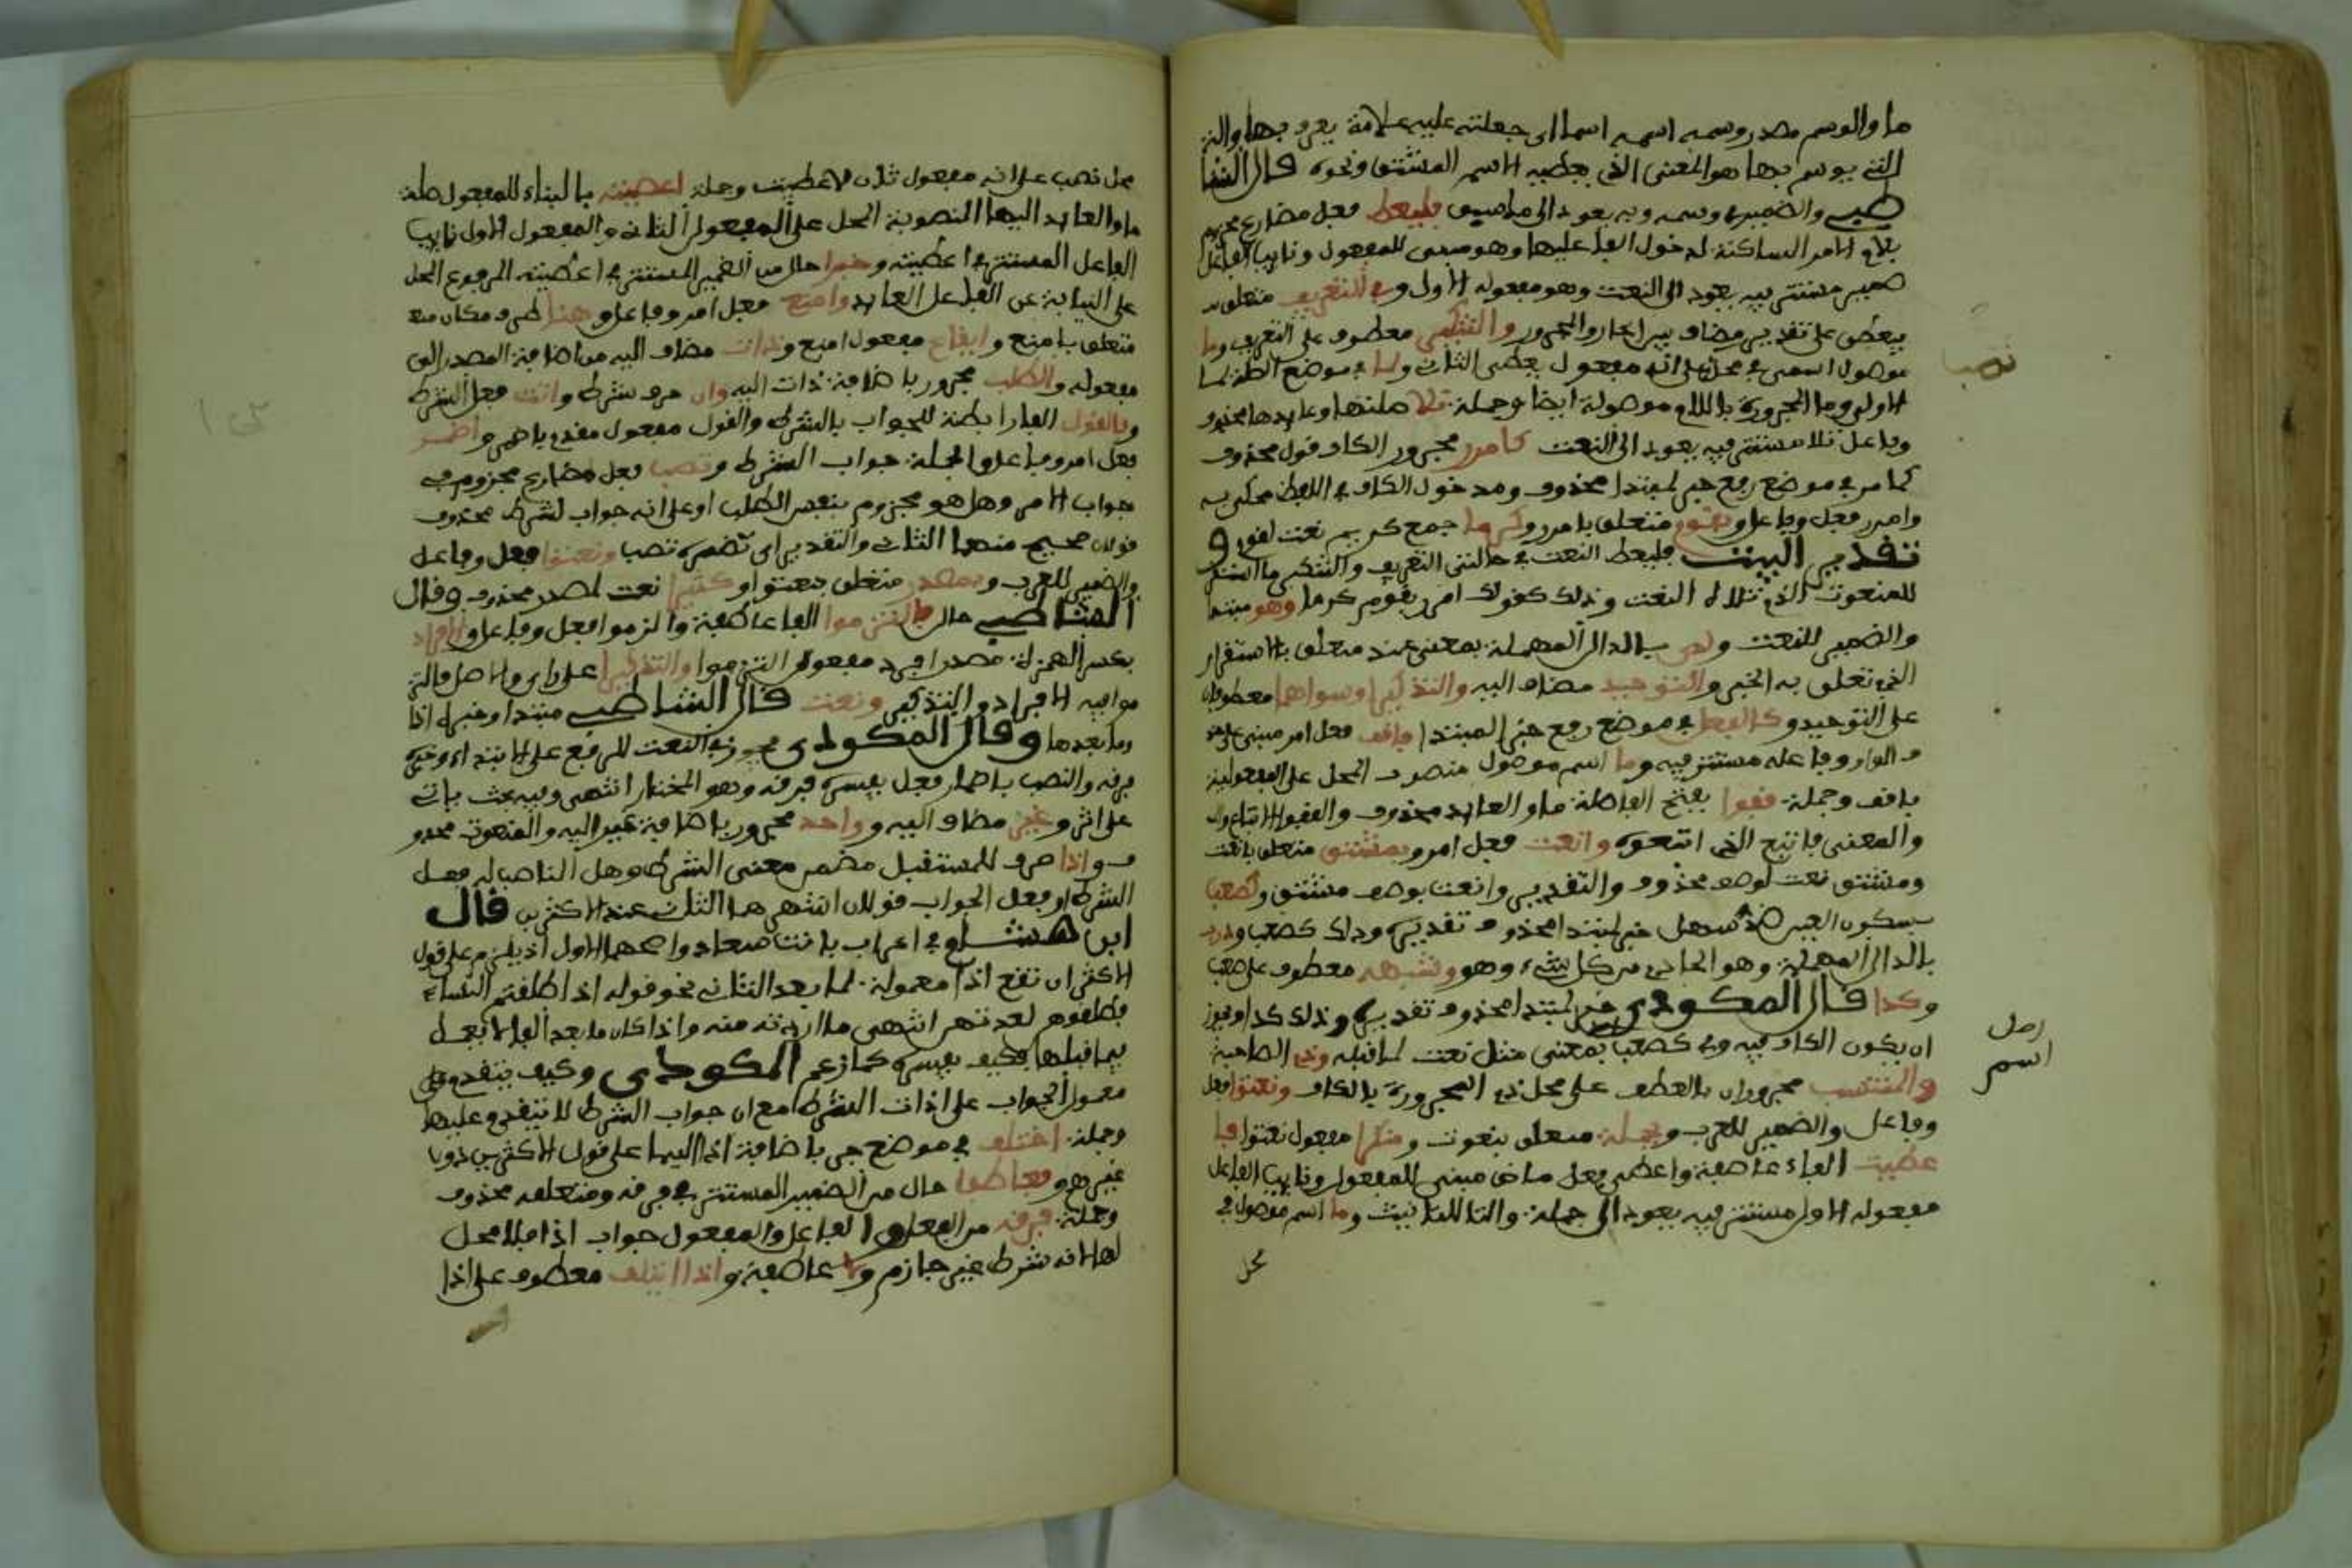 ما والوسم مصدر وسمه اسمه اسما اى جعلته عليه علامة يعرف بها والتى
التى يوسم بها هو المعنى الذى يعطيه الاسم المشتق ونحوه قال الشا
طبى والضمير فى وسمه وبه يعود الى ما سبق فليعط فعل مضارع مجزوم
بلام الامر الساكنة لدخول الفا عليها وهو مبنى للمفعول ونايب الفاعل
ضمير مستتر فيه يعود الى النعت وهو مفعوله الاول وفى التعريف متعلق
بيعطى على تقدير مضاف بين الجار والمجرور والتنكير معطوف على التعريف وما
موصول اسمى فى محل على انه مفعول يعطى الثانى ولما فى موضع الصلة لما
الاولى وما المجرورة باللام موصولة ايضا وجملة تلا صلتها وعايدها محذوف
وفاعل تلا مستتر فيه يعود الى النعت كامرر مجرور الكاف قول محذوف
كما مر فى موضع رفع خبر لمبتدا محذوف ومدخول الكاف فى اللفظ محكى به
وامرر فعل وفاعل وبقوم متعلق بامرر وكرما جمع كريم نعت لقوم و
تقدير البيت فليعط النعت فى حالتى التعريف والتنكير ما استقر
للمنعوت الذى تلاه النعت وذلك كقولك امرر بقوم كرما وهو مبتدا
والضمير للنعت ولدى بالدال المهملة بمعنى عند متعلق بالاستقرار
الذى تعلق به الخبر والتوحيد مضاف اليه والتذكير او سواهما معطوفان
على التوحيد وكالفعل فى موضع رفع خبر المبتدا فاقف فعل امر مبنى على حذ
ف الواو وفاعله مستتر فيه وما اسم موصول منصوب المحل على المفعولية
باقف وجملة قفوا بفتح الفا صلة ما والعايد محذوف والقفو الاتباع
والمعنى فاتبع الذى اتبعوه وانعت فعل امر وبمشتق متعلق بانعت
ومشتق نعت لوصف محذوف والتقدير وانعت بوصف مشتق وكصعب
بسكون العين ضد سهل خبر لمبتدا محذوف تقديره وذلك كصعب وذرب
بالدال المهملة وهو الحاد من كل شىء وهو وشبهه معطوف على صعب
وكذا قال المكودى خبر لمبتدا محذوف تقديره وذلك كذا ويجوز
ان يكون الكاف فيه وفى كصعب بمعنى مثل نعت لما قبله وذى الصاحبة
والمنتسب مجروران بالعطف على محل ذى المجرورة بالكاف ونعتوا فعل
وفاعل والضمير للعرب وبجملة متعلق بنعوت ومنكرا مفعول نعتوا فا
عطيت الفاء عاطفة واعطى فعل ماض مبنى للمفعول ونايب الفاعل
مفعوله الاول مستتر فيه يعود الى جملة والتا للتانيث وما اسم موصول فى
محل
نصب
رمل
اسم
محل نصب على انه مفعول ثان لاعطيت وجملة اعطيته بالبناء للمفعول صلة
ما والعايد اليها المنصوبة المحل على المفعول الثانى والمفعول الاول نايب
الفاعل المستتر فى اعطيته وخبرا حال من الضمير المستتر فى اعطيته المرفوع المحل
على النيابة عن الفاعل العايد وامنع فعل امر وفاعل وهنا ظرف مكان منع
متعلق بامنع وايقاع مفعول امنع وذات مضاف اليه من اضافة المصدر الى
مفعوله والطلب مجرور باضافة ذات اليه وان حرف شرط واتت فعل الشرط
وبالقول الفا رابطة للجواب بالشرط والقول مفعول مقدم باضمر واضمر
فعل امر وفاعل والجملة جواب الشرط وتصب فعل مضارع مجزوم فى
جواب الامر وهل هو مجزوم بنفس الطلب او على انه جواب لشرط محذوف
قولان صحيح منهما الثانى والتقدير اى تضمره تصب ونعتوا فعل وفاعل
والضمير للعرب وبمصدر متعلق بنعتوا وكثيرا نعت لمصدر محذوف وقال
الشاطبى حال فالتزموا الفا عاطفة والتزموا فعل وفاعل والافراد
بكسر الهمزة مصدر افرد مفعول التزموا والتذكيرا على راى والاصل فالتز
موا فيه الافراد والتذكير ونعت قال الشاطبى مبتدا وخبره اذا
وما بعدها وقال المكودى يجوز فى النعت الرفع على الابتداء وخبره
فرقه والنصب باضمار فعل يفسره فرقه وهو المختار انتهى وفيه بحث ياتى
على اثر وغير مضاف اليه وواحد مجرور باضافة غير اليه والمنعوت محذو
ف واذا ظرف للمستقبل مضمر معنى الشرط وهل الناصب له فعل
الشرط او فعل الجواب قولان اشهرهما الثانى عند الاكثرين قال
ابن هشام فى اعراب بانت سعاد واصحهما الاول اذ يلزم على قول
الاكثر ان تقع اذا معمولة لما بعد الثانى نحو قوله اذا طلقتم النساء
فطلقوهن لعدتهن انتهى ما اردته منه واذا كان ما بعد الفا لا يعمل
فيما قبلها فكيف يفسره كما زعم المكودى وكيف يتقدم على
معمول الجواب على اذات الشرط مع ان جواب الشرط لا يتقدم عليها
وجملة اختلف فى موضع جر باضافة اذا اليها على قول الاكثرين دون
غيرهم وفعاطفا حال من الضمير المستتر فى فرقه ومتعلقه محذوف
وجملة فرقه من الفعل والفاعل والمفعول جواب اذا فلا محل
لها لانه شرط غير جازم ولا عاطفة واذا ائتلف معطوف على اذا